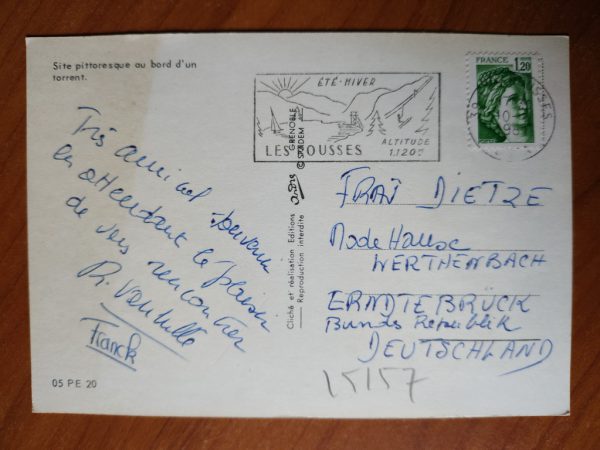 Site pittoresque au bord d'un
torrent.
Très amical souvenir
en attendant le plaisir
de vous rencontrer
R.
Franck
05 PE 20
Cliché et réalisation Editions
Reproduction interdite
GRENOBLE
ÉTÉ-HIVER
LES ROUSSES
ALTITUDE
1.120m
FRANCE
1,20
39
FRAÜ DIETZE
Mode Hause
WERTHENBACH
ERNDTEBRÜCK
Bundes Republik
DEUTSCHLAND
15157